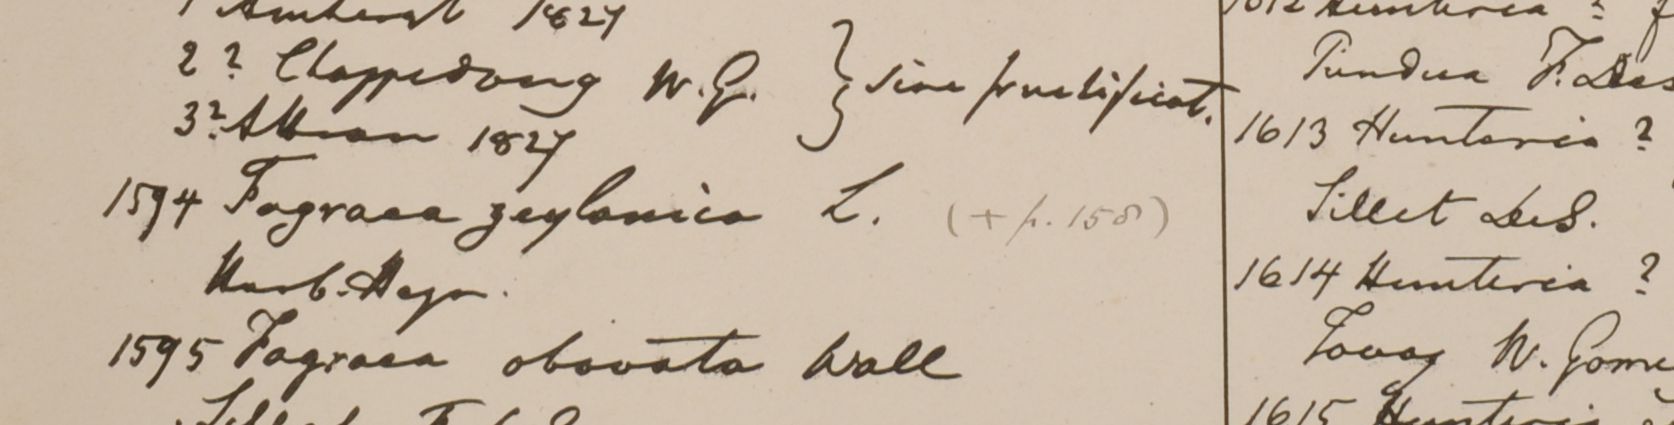 1 Amherst 1827
2? Chappedong W.G. } sine fructificat.
3? Attran 1827
1594 Fagraea zeylanica L. (+ p. 158)
Herb. Heyn.
1595 Fagraea obovata Wall
1612 Hunteria ?
Pundua F. De S
1613 Hunteria ?
Sillet De S.
1614 Hunteria ?
Tavoy W. Gome
1615 Hunteria